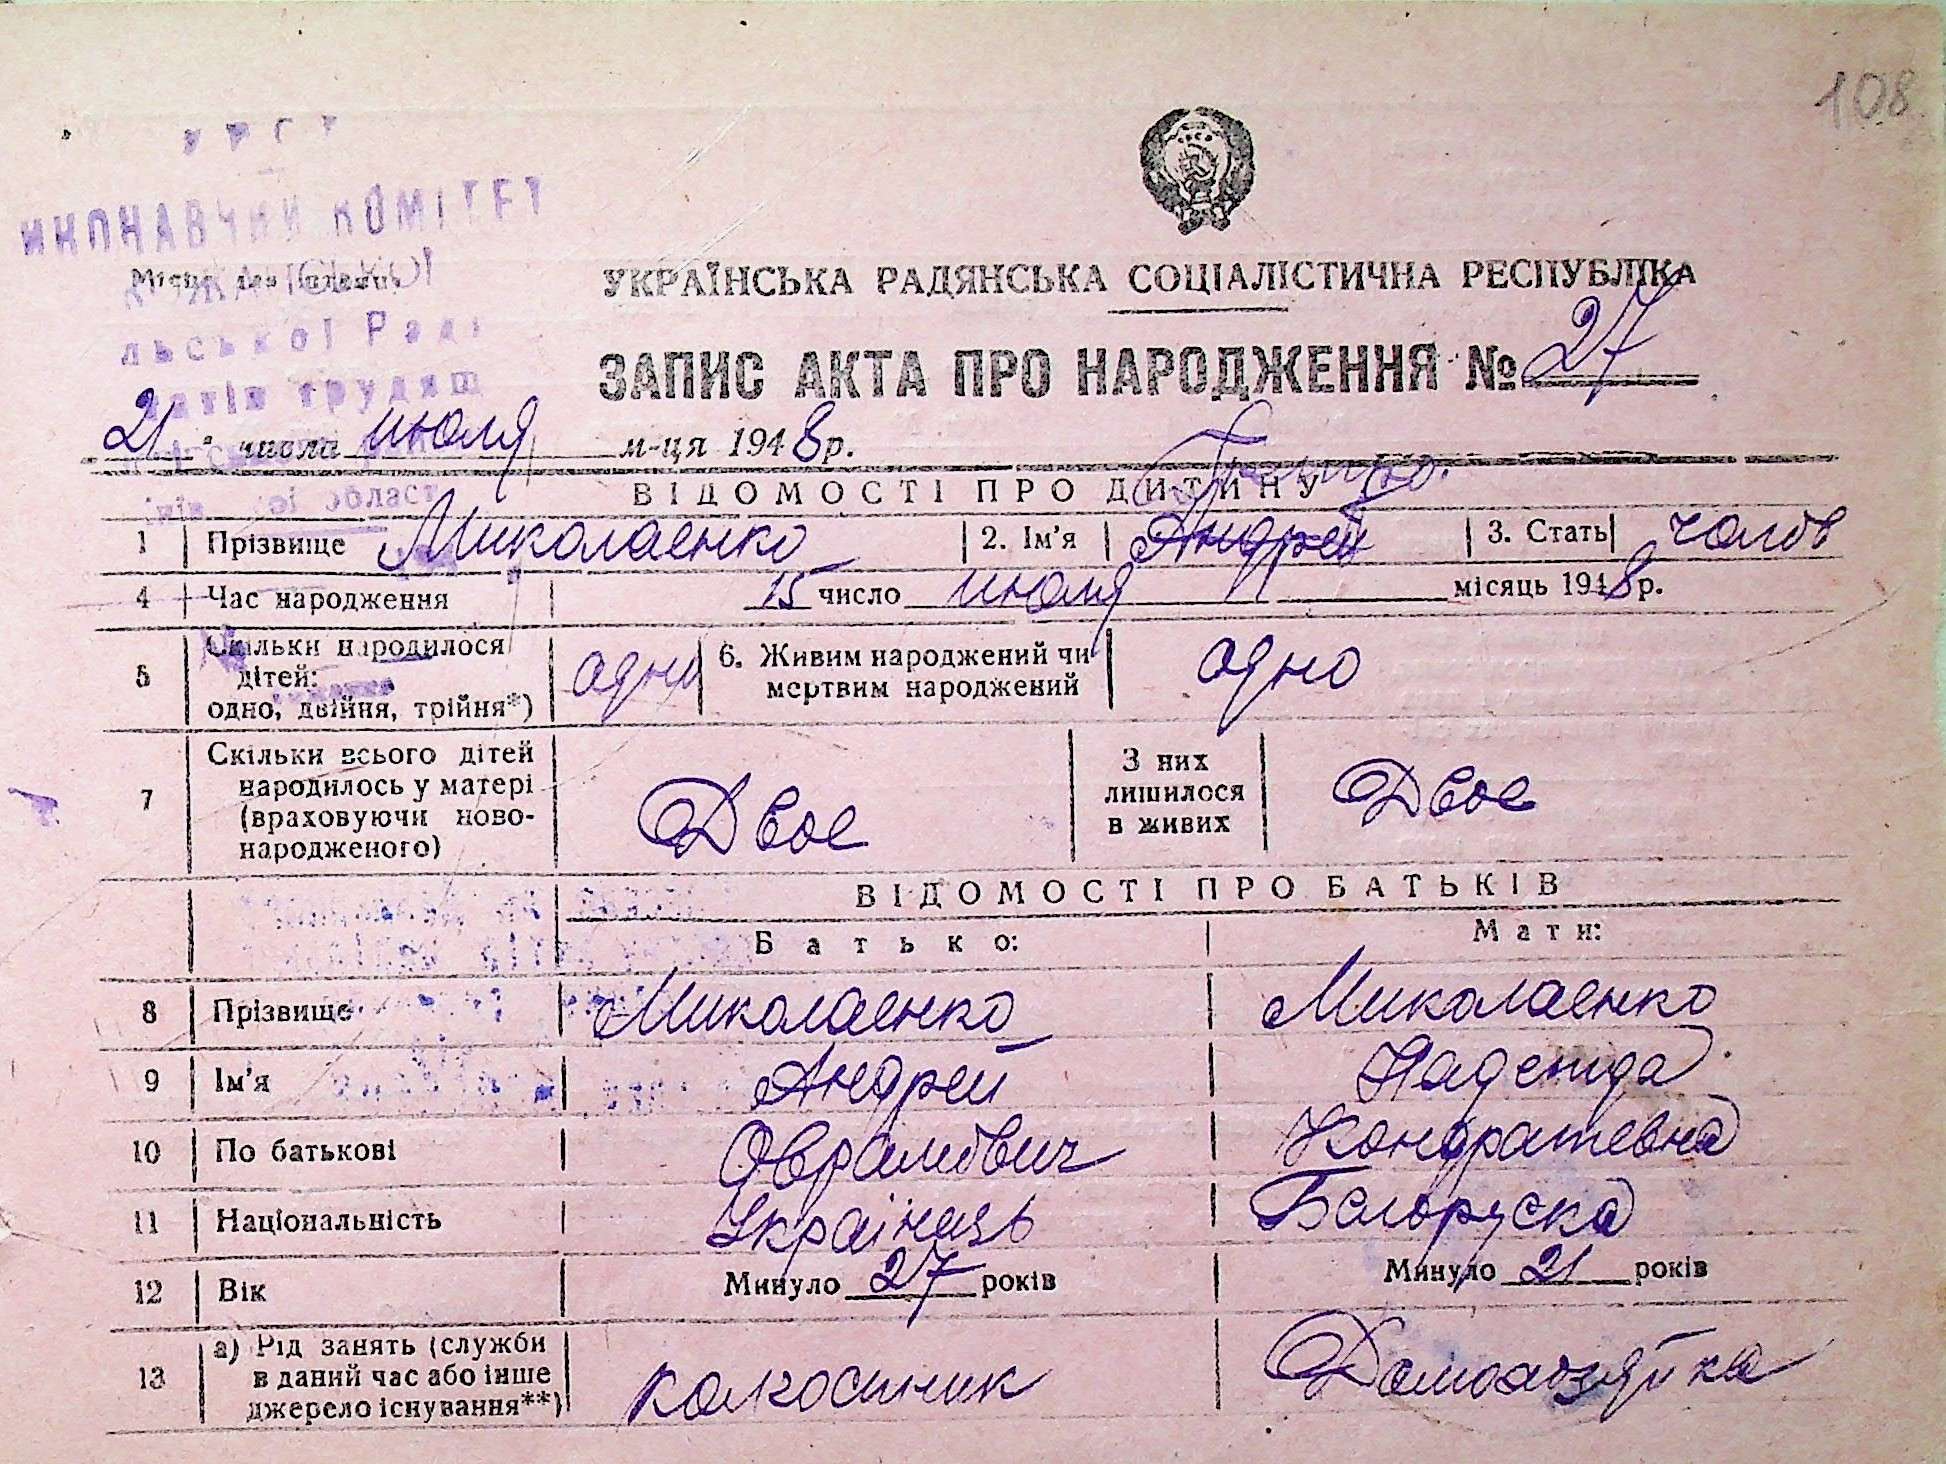 108
ИКОНАВЧИЙ КОМІТЕТ
УКРАЇНСЬКА РАДЯНСЬКА СОЦІАЛІСТИЧНА РЕСПУБЛІКА
льської Рад
ЗАПИС АКТА ПРО НАРОДЖЕННЯ № 27
21 числа июля м-ця 1948 р.
ВІДОМОСТІ ПРО ДИТИНУ
1 Прізвище Миколаенко 2. Ім'я Андрей 3. Стать чолов
4 Час народження 15 число июля місяць 1948 р.
5 Скільки народилося дітей: одно, двійня, трійня*) одни 6. Живим народжений чи мертвим народжений одно
7 Скільки всього дітей народилось у матері (враховуючи ново-народженого) Двое З них лишилося в живих Двое
ВІДОМОСТІ ПРО БАТЬКІВ
Батько: Мати:
8 Прізвище Миколаенко Миколаенко
9 Ім'я Андрей Надежда
10 По батькові Оврамович Кондратевна
11 Національність Українець Белоруска
12 Вік Минуло 27 років Минуло 21 років
13 а) Рід занять (служби в даний час або інше джерело існування**) колхосник Домохозяйка